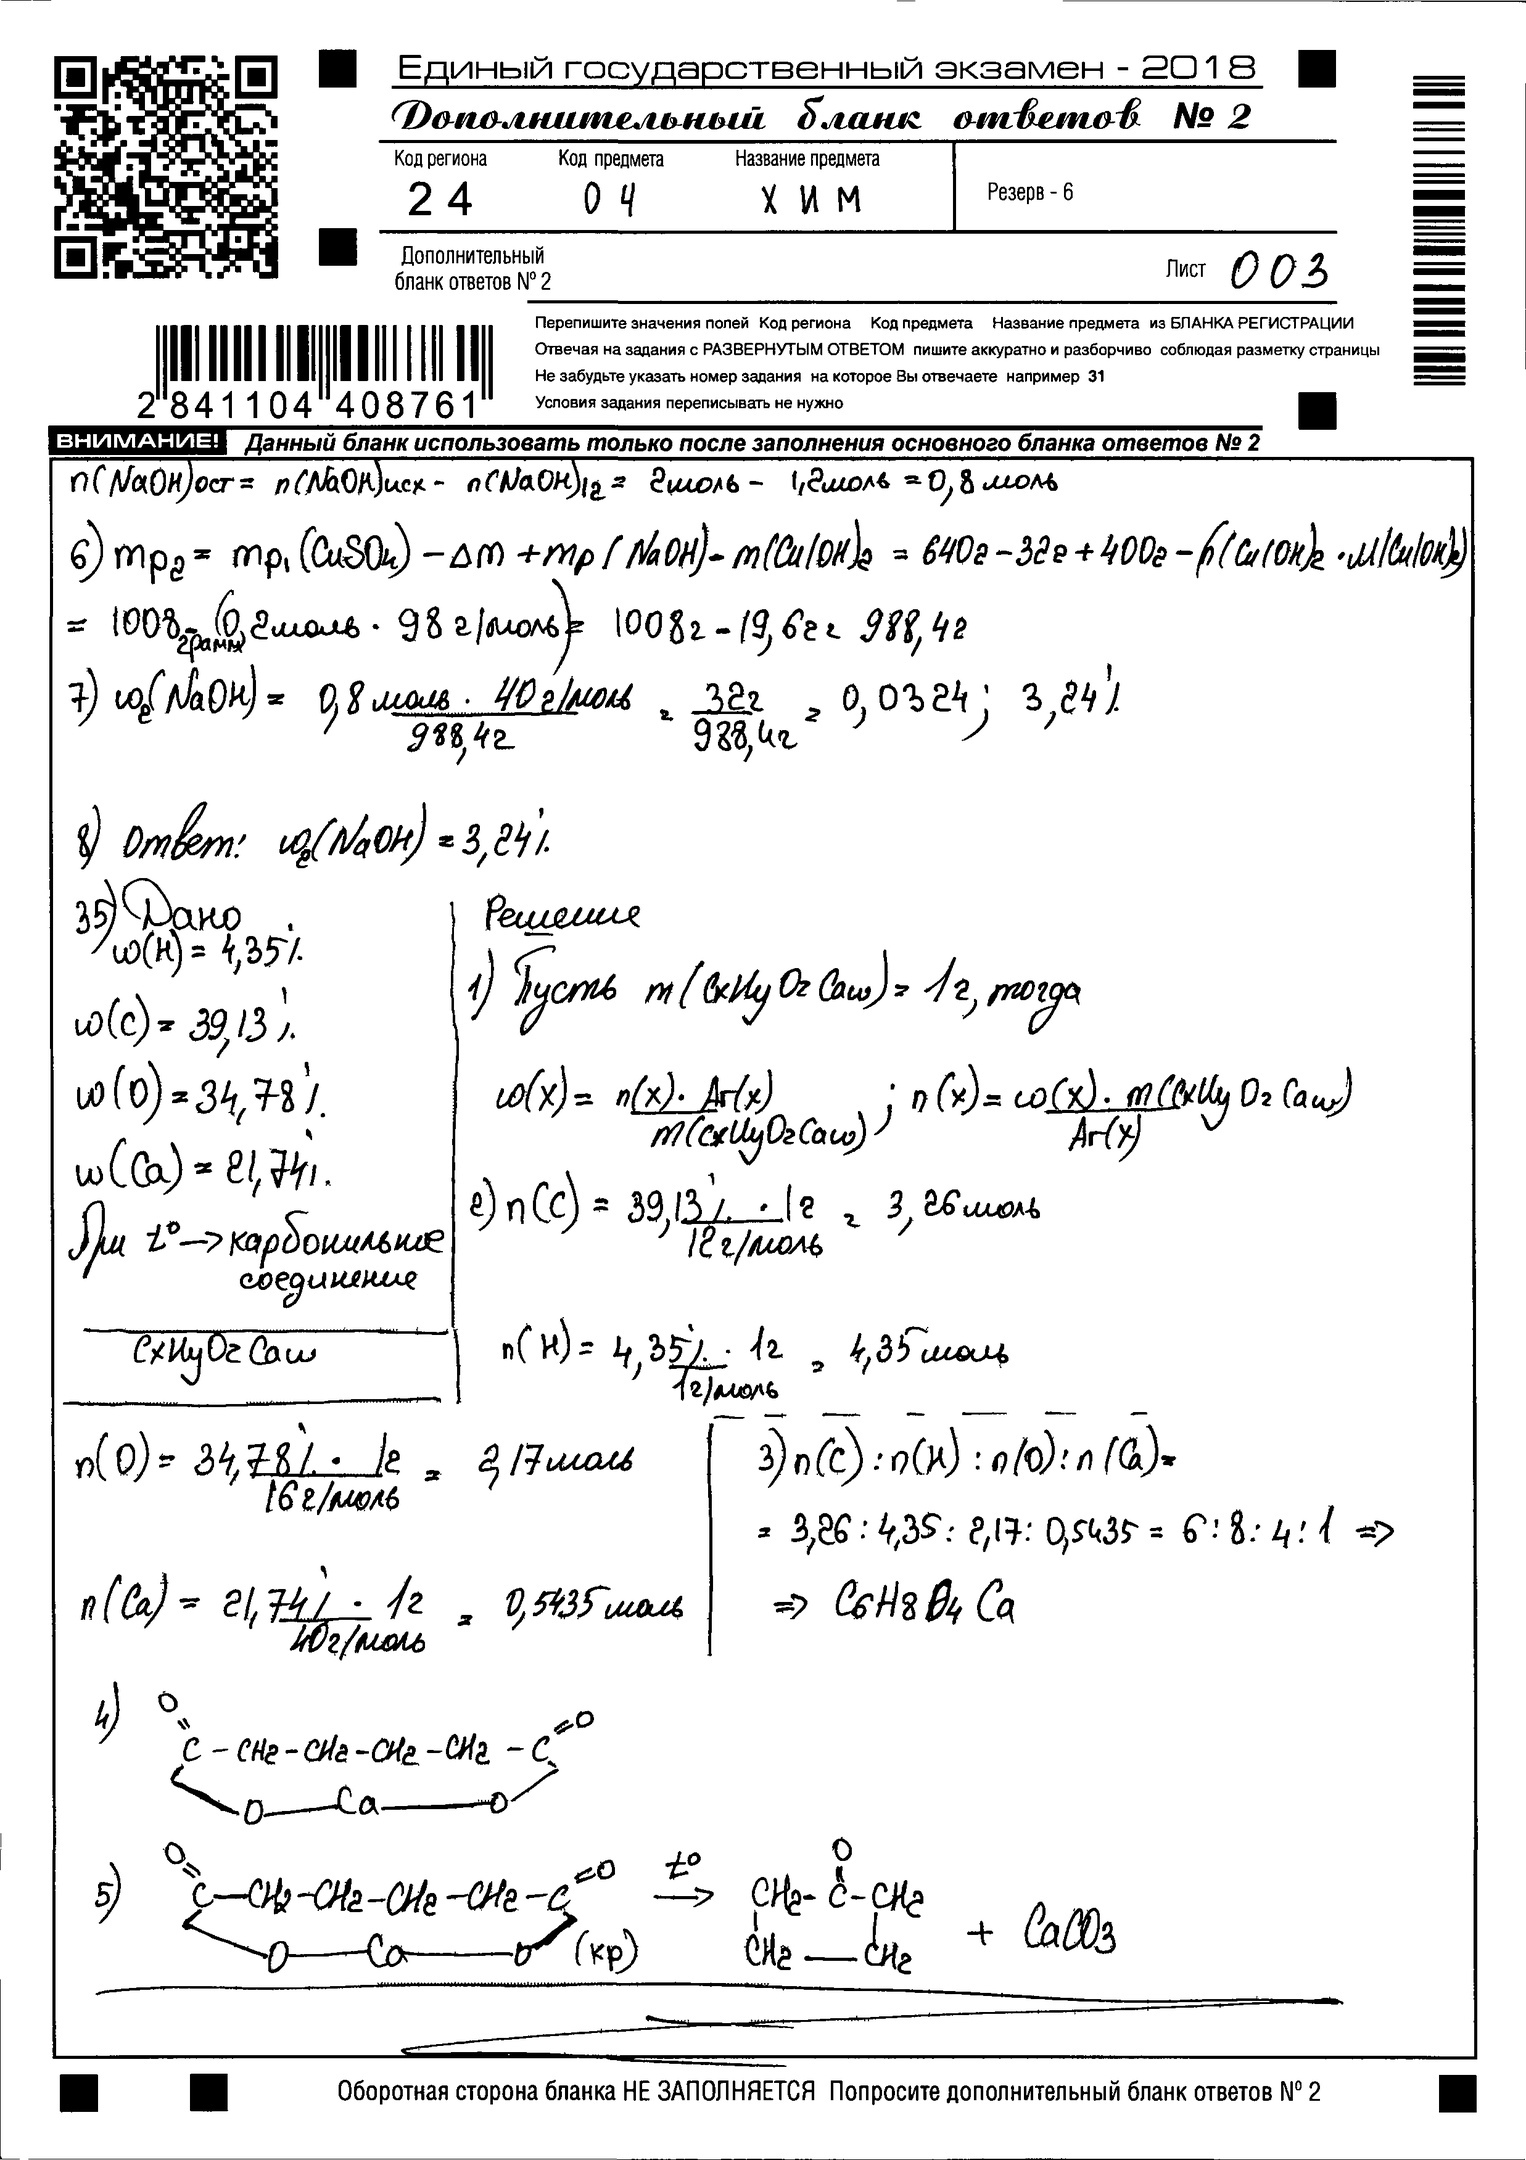 Единый государственный экзамен - 2018
Дополнительный бланк ответов № 2
Код региона Код предмета Название предмета
24 04 ХИМ
Резерв - 6
Дополнительный
бланк ответов № 2
Лист 003
Перепишите значения полей Код региона Код предмета Название предмета из БЛАНКА РЕГИСТРАЦИИ
Отвечая на задания с РАЗВЕРНУТЫМ ОТВЕТОМ пишите аккуратно и разборчиво соблюдая разметку страницы
Не забудьте указать номер задания на которое Вы отвечаете например 31
Условия задания переписывать не нужно
2 841104 408761
ВНИМАНИЕ! Данный бланк использовать только после заполнения основного бланка ответов № 2
n(NaOH)ост = n(NaOH)исх - n(NaOH)12 = 2моль - 1,2моль = 0,8 моль
6) mр2 = mр1(CuSO4) - Δm + mр(NaOH) - m(Cu(OH)2 = 640г - 32г + 400г - n(Cu(OH)2 · M(Cu(OH)2)
= 1008 грамм - (0,2моль · 98 г/моль) = 1008г - 19,6г = 988,4г
7) ω2(NaOH) = 0,8 моль · 40 г/моль / 988,4г = 32г / 988,4г = 0,0324; 3,24%
8) Ответ: ω2(NaOH) = 3,24%
35) Дано
ω(H) = 4,35%
ω(C) = 39,13%
ω(O) = 34,78%
ω(Ca) = 21,74%
При t° → карбонильное
соединение
CxHyOzCaw
Решение
1) Пусть m(CxHyOzCaw) = 1г, тогда
ω(x) = n(x) · Ar(x) / m(CxHyOzCaw); n(x) = ω(x) · m(CxHyOzCaw) / Ar(x)
2) n(C) = 39,13% · 1г / 12г/моль = 3,26моль
n(H) = 4,35% · 1г / 1г/моль = 4,35моль
n(O) = 34,78% · 1г / 16г/моль = 2,17моль
n(Ca) = 21,74% · 1г / 40г/моль = 0,5435моль
3) n(C) : n(H) : n(O) : n(Ca) =
= 3,26 : 4,35 : 2,17 : 0,5435 = 6 : 8 : 4 : 1 ⇒
⇒ C6H8O4Ca
4) O O
C - CH2 - CH2 - CH2 - CH2 - C
O Ca O
5) O O t° O
C - CH2 - CH2 - CH2 - CH2 - C → CH2 - C - CH2
O Ca O (кр) CH2 CH2 + CaCO3
Оборотная сторона бланка НЕ ЗАПОЛНЯЕТСЯ Попросите дополнительный бланк ответов № 2